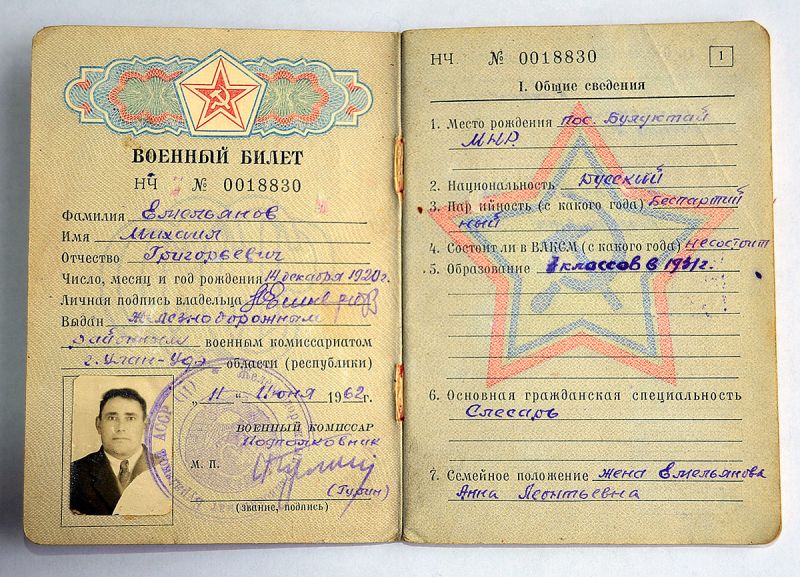 ВОЕННЫЙ БИЛЕТ
НЧ № 0018830
Фамилия Емельянов
Имя Михаил
Отчество Григорьевич
Число, месяц и год рождения 14 декабря 1920г.
Личная подпись владельца
Выдан Железнодорожным
районным военным комиссариатом
г. Улан-Удэ области (республики)
"11" Июня 1962г.
ВОЕННЫЙ КОМИССАР
Подполковник
М. П.
(Гурин)
(звание, подпись)
НЧ № 0018830 1
I. Общие сведения
1. Место рождения пос. Булуктай
МНР.
2. Национальность Русский
3. Партийность (с какого года) Беспартий
ный
4. Состоит ли в ВЛКСМ (с какого года) несостоит
5. Образование 7 классов в 1931г.
6. Основная гражданская специальность
Слесарь
7. Семейное положение жена Емельянова
Анна Леонтьевна